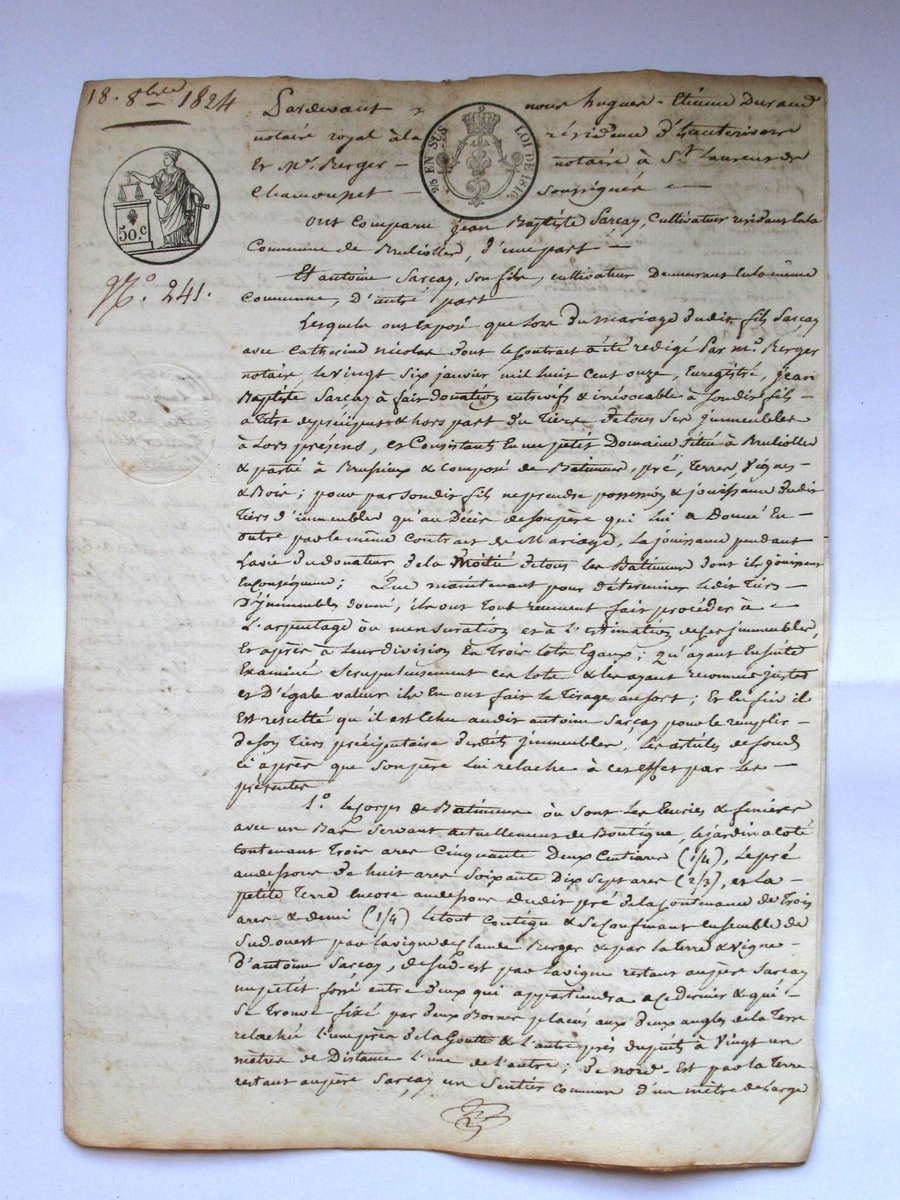 18. 8bre 1824
Pardevant nous hugues-Etienne Durand
notaire royal à la résidence d'hauterivoire
Et Me. Berger - notaire à St. Laurent de
Chamousset - Soussignés
25 EN SUS LOI DE 1816.
50.C
No. 241.
Ont Comparu jean Baptiste Sarcay, Cultivateur residant en la
Commune de Brullioles, d'une part
Et antoine Sarcay, Son fils, cultivateur Demeurant en la même
Commune, D'autre part
Lesquels ont Exposé que lors Du mariage dudit fils Sarcay
avec Catherine nicolas dont le Contrat a été redigé Par me. Berger
notaire, le vingt Six janvier mil huit Cent onze, Enregistré, jean
Baptiste Sarcay a fait Donation entrevifs & irrévocable à Sondit fils
a titre de préciput & hors part Du Tiers de tous Ses jmmeubles
à Lors présens, et Consistant En un petit Domaine Situé à Brullioles
& partie à Brussieux & Composé de Batimens, pré, Terres, Vignes
& Bois; pour par Sondit fils ne prendre possession & jouissance dudit
Tiers d'immeubles qu'au Décès de Son père qui Lui a Donné En
outre par le même Contrat de Mariage, La jouissance pendant
La vie du donateur de la Moitié de tous les Batimens dont ils jouissent
; Que maintenant pour Déterminer le dit Tiers
D'jmmeubles donné, ils ont tout récement fait procéder à
L'arpentage ou mensuration et à L'Estimation de Ses jmmeubles,
Et après à Leur division En Trois lots Egaux; qu'ayant Ensuite
Examiné Scrupuleusement Ces lots & les ayant reconnus justes
et D'égale valeur ils En ont fait Le Tirage au sort; Et Enfin il
Est resulté qu'il est Echu audit antoine Sarcay pour le remplir
de Son Tiers précipuaire desdits jmmeubles, Les articles de fonds
ci après que Son père Lui relache à Cet effet par Les
présentes
1.o Le Corps de Batimens où Sont Les Ecuries & finières
avec un Bas Servant actuellement de Boutique, le jardin a Coté
Contenant Trois ares Cinquante Deux Centiares (1/4), Le pré
au dessous De huit ares Soixante Dix Sept ares (2/3), et La
petite Terre Encore au dessous dudit pré de la Contenance de Trois
ares & demi (1/4) Le tout Contigu & Se Confinant Ensemble de
Sud-ouest par la vigne de Claude Berger & par la terre & vigne
D'antoine Sarcay, de Sud-est par la vigne restant au père Sarcay
un petit fossé entre Deux qui appartiendra à Ce dernier & qui
Se Trouve fixé par deux Bornes placées aux deux angles de la Terre
relachée L'une près de la Goutte & L'autre près du puits à Vingt un
mètres de Distance L'une de L'autre; de nord-Est par la Terre
restant au père Sarcay un Sentier Commun d'un mètre de Large